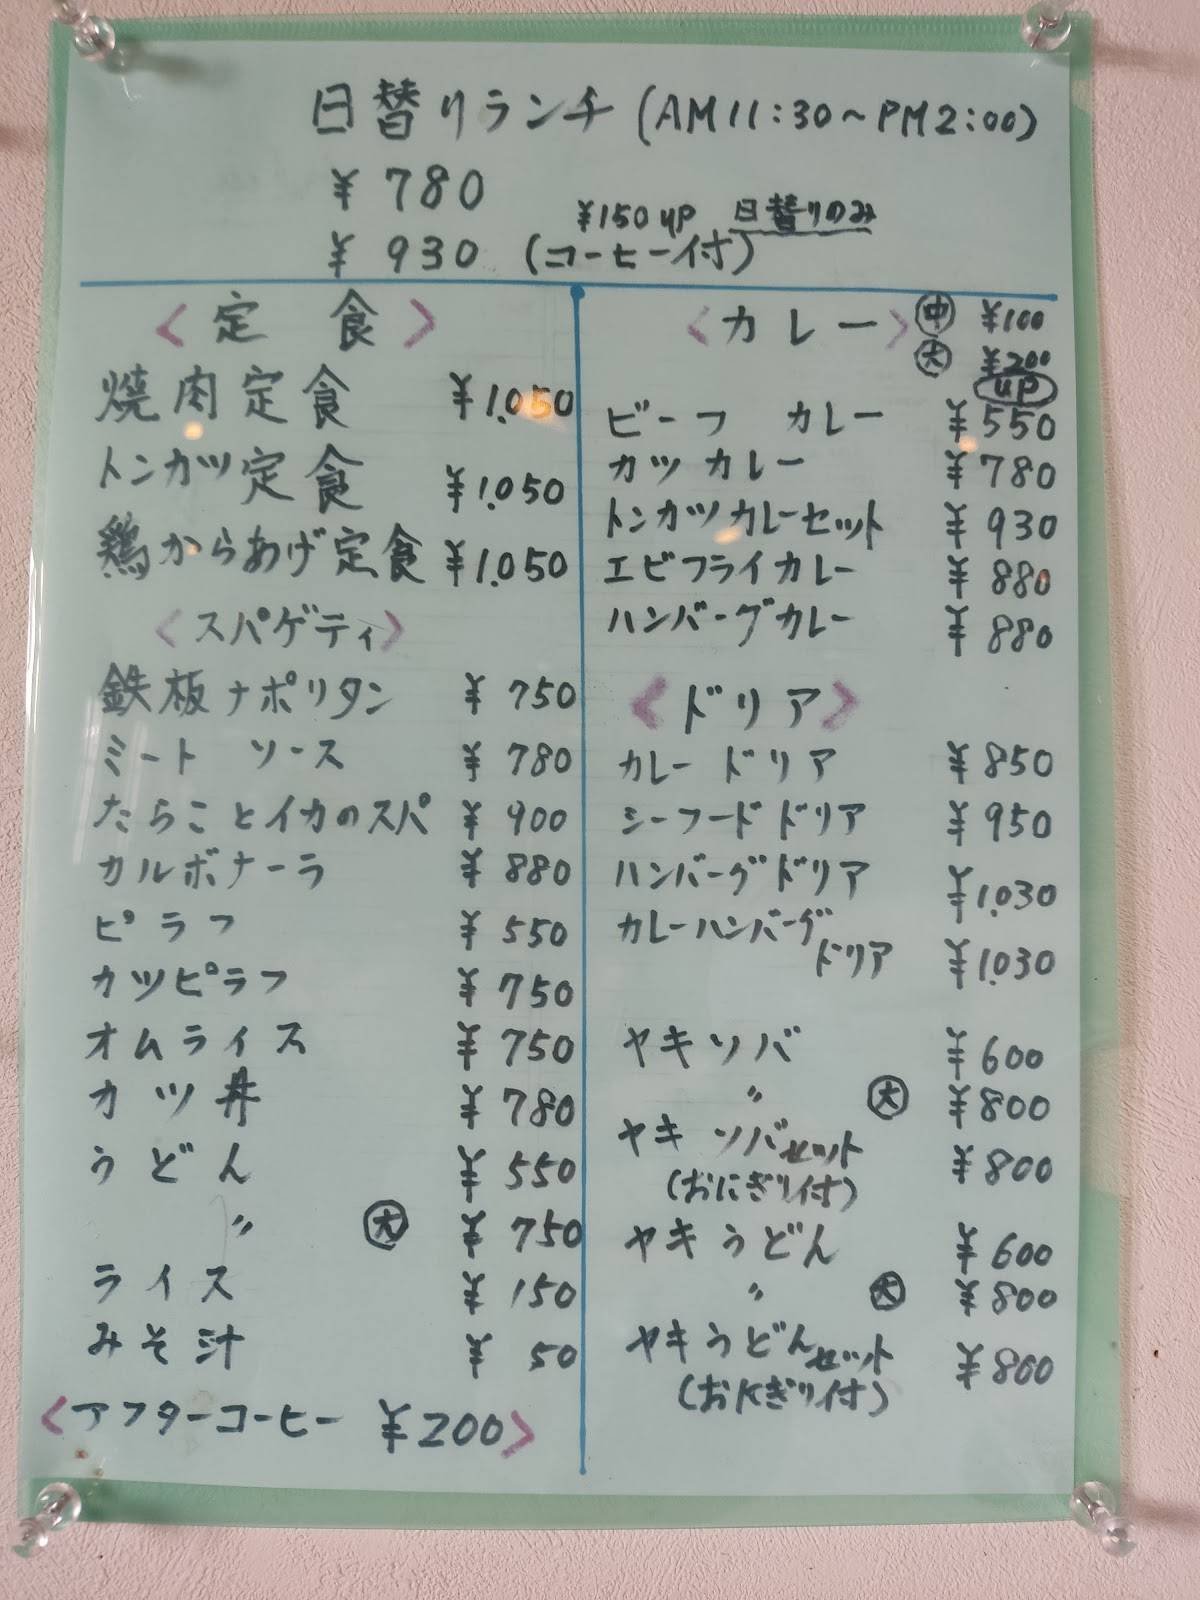 日替りランチ (AM11:30～PM2:00)
¥780
¥150up 日替りのみ
¥930 (コーヒー付)
〈定食〉
焼肉定食 ¥1.050
トンカツ定食 ¥1.050
鶏からあげ定食 ¥1.050
〈スパゲティ〉
鉄板ナポリタン ¥750
ミートソース ¥780
たらことイカのスパ ¥900
カルボナーラ ¥880
ピラフ ¥550
カツピラフ ¥750
オムライス ¥750
カツ丼 ¥780
うどん ¥550
〃 大 ¥750
ライス ¥150
みそ汁 ¥50
〈アフターコーヒー ¥200〉
〈カレー〉 中 ¥100
大 ¥200
up
ビーフ カレー ¥550
カツカレー ¥780
トンカツカレーセット ¥930
エビフライカレー ¥880
ハンバーグカレー ¥880
〈ドリア〉
カレードリア ¥850
シーフードドリア ¥950
ハンバーグドリア ¥1.030
カレーハンバーグ
ドリア ¥1030
ヤキソバ ¥600
〃 大 ¥800
ヤキソバセット ¥800
(おにぎり付)
ヤキうどん ¥600
〃 大 ¥800
ヤキうどんセット ¥800
(おにぎり付)